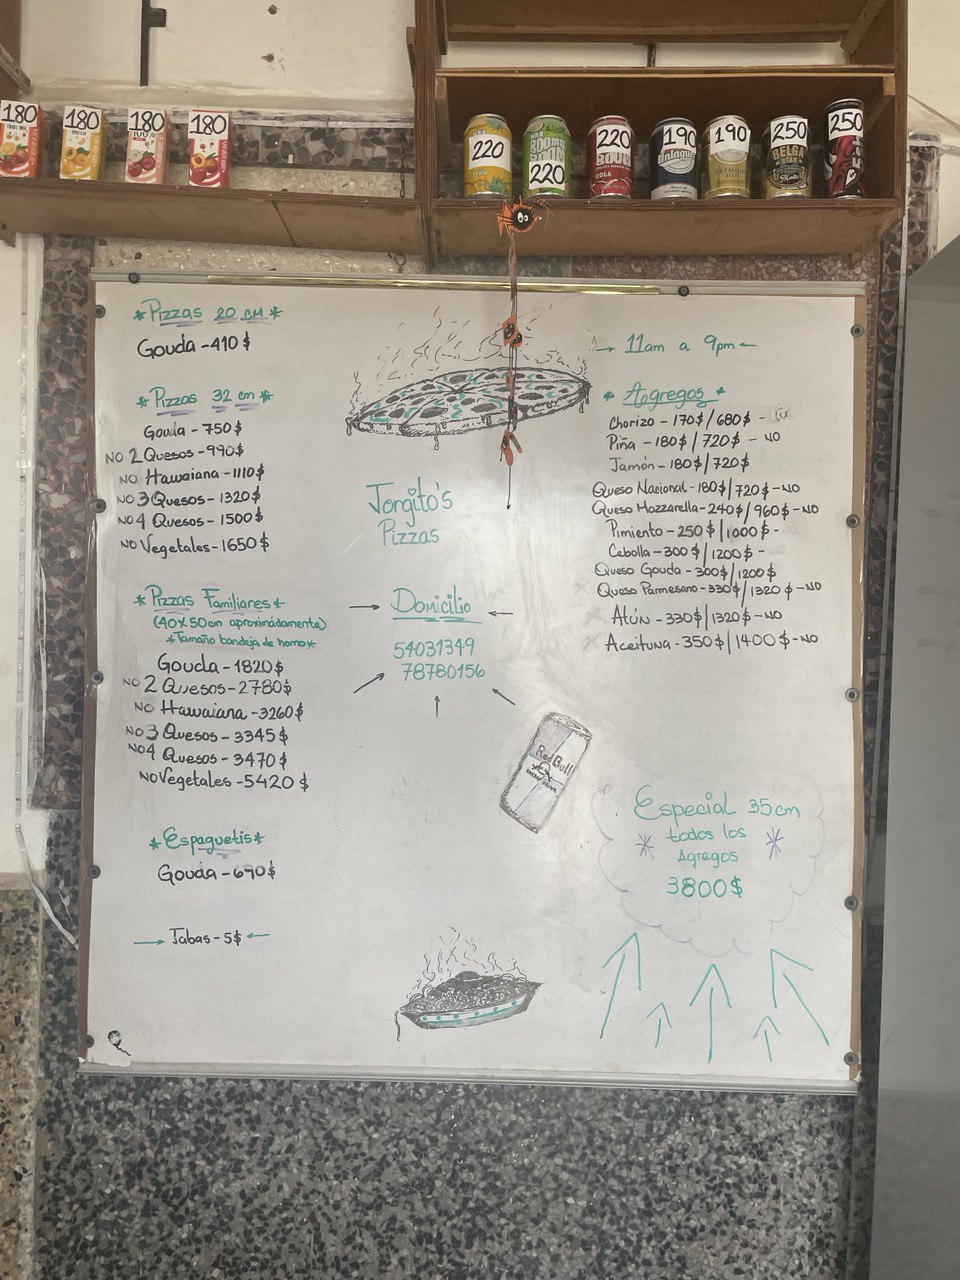 180
180
180
180
220
220
220
190
190
250
250
COLA
PREMIUM
BELGA
STAR
*Pizzas 20 cm*
Gouda - 410 $
*Pizzas 32 cm*
Gouda - 750$
NO 2 Quesos - 990$
NO Hawaiana - 1110$
NO 3 Quesos - 1320$
NO 4 Quesos - 1500$
NO Vegetales - 1650$
*Pizzas Familiares*
(40x50cm aproximadamente)
*Tamaño bandeja de horno*
Gouda - 1820$
NO 2 Quesos - 2780$
NO Hawaiana - 3260$
NO 3 Quesos - 3345$
NO 4 Quesos - 3470$
NO Vegetales - 5420$
*Espaguetis*
Gouda - 690$
→ Jabas - 5$ ←
Jorgito's
Pizzas
→ Domicilio ←
54031349
78780156
Red Bull
→ 11am a 9pm ←
*Agregos*
Chorizo - 170$/680$ -
Piña - 180$/720$ - NO
Jamón - 180$/720$
Queso Nacional - 180$/720$ - NO
Queso Mozzarella - 240$/960$ - NO
Pimiento - 250$/1000$ -
Cebolla - 300$/1200$ -
Queso Gouda - 300$/1200$
Queso Parmesano - 330$/1320$ - NO
Atún - 330$/1320$ - NO
Aceituna - 350$/1400$ - NO
Especial 35cm
* todos los *
Agregos
3800$